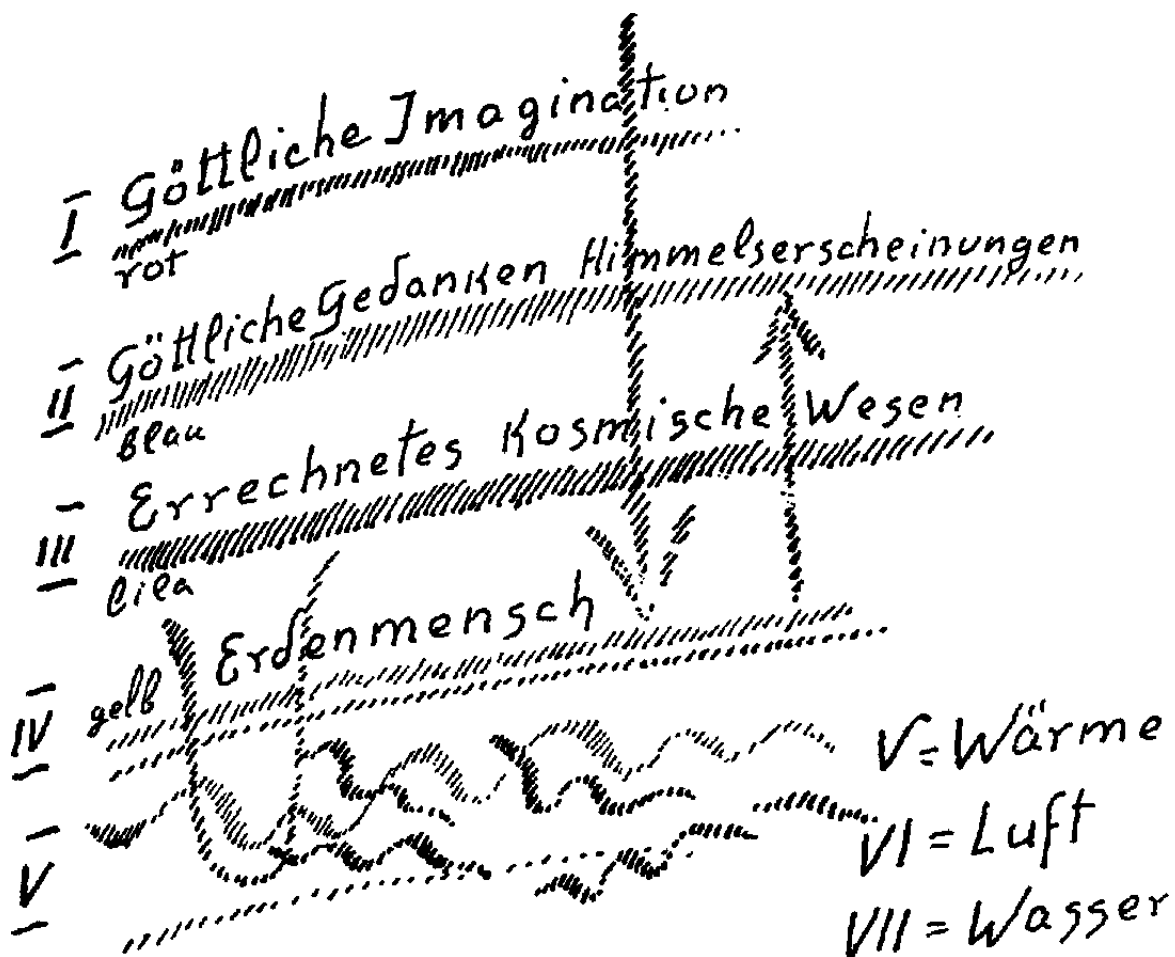 I Göttliche Imagination
rot
II Göttliche Gedanken Himmelserscheinungen
blau
III Errechnetes Kosmische Wesen
lila
IV gelb Erdenmensch
V
V = Wärme
VI = Luft
VII = Wasser